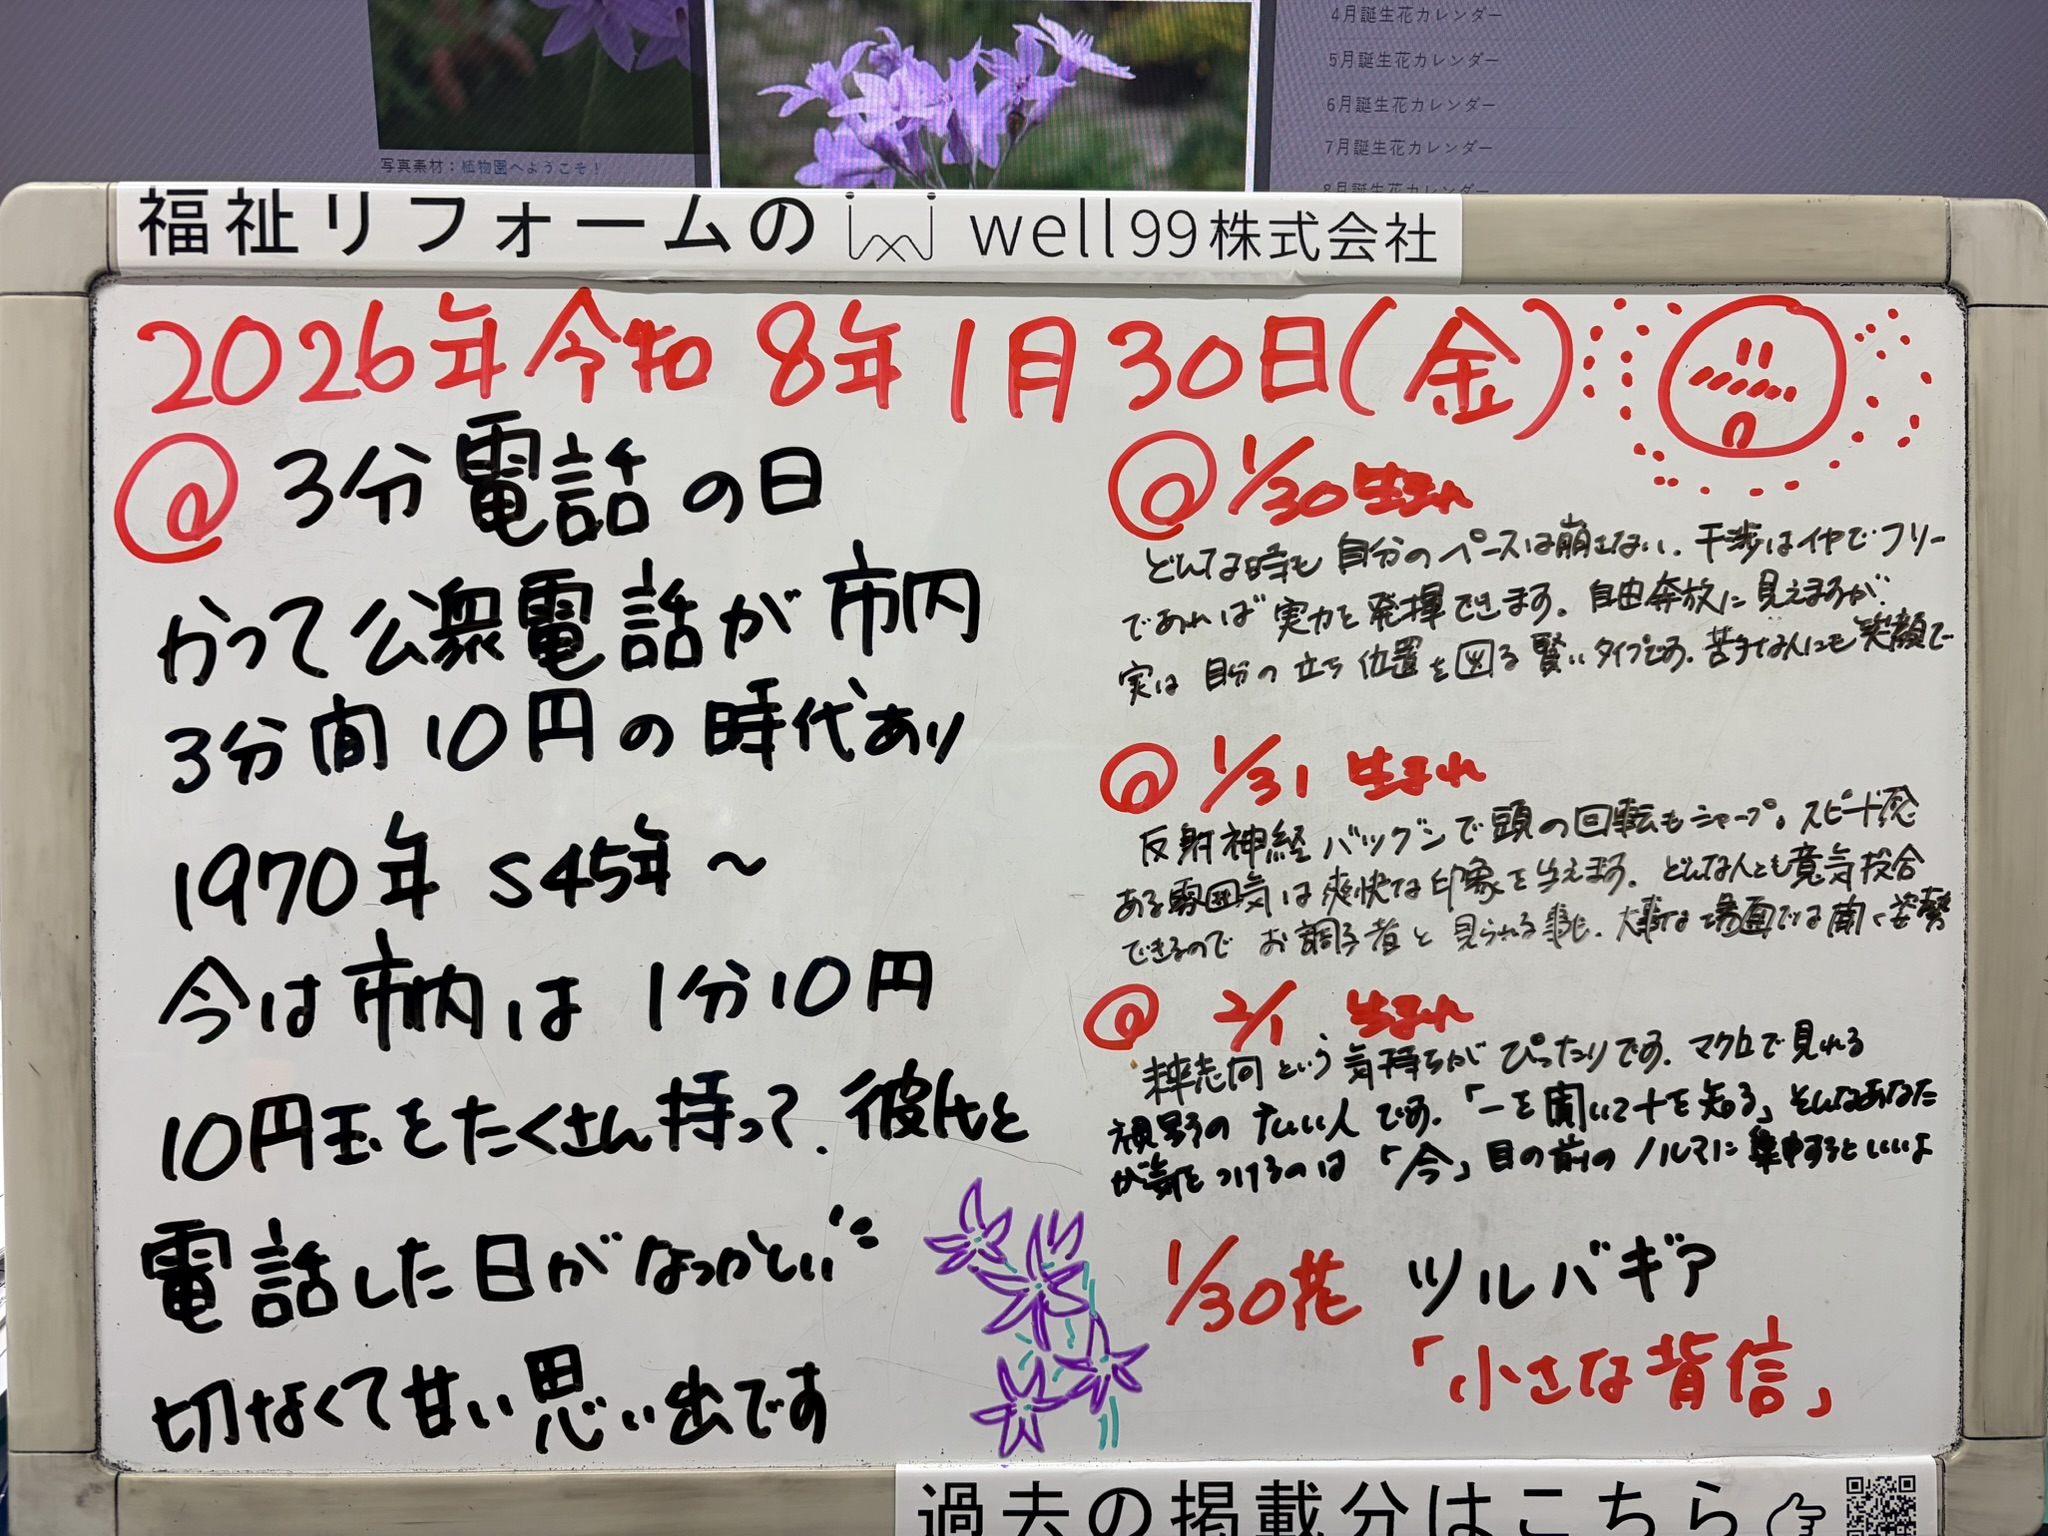 4月誕生花カレンダー
5月誕生花カレンダー
6月誕生花カレンダー
7月誕生花カレンダー
8月誕生花カレンダー
写真素材：植物園へようこそ！
福祉リフォームの well99株式会社
2026年令和8年1月30日(金)
@ 3分電話の日
かつて公衆電話が市内
3分間10円の時代あり
1970年 S45年～
今は市内は 1分10円
10円玉をたくさん持って、彼氏と
電話した日がなつかしい
切なくて甘い思い出です
@ 1/30生まれ
どんな時も自分のペースは崩さない。干渉はイヤでフリー
であれば実力を発揮できます。自由奔放に見えますが、
実は自分の立ち位置を図る賢いタイプです。苦手な人にも笑顔で
@ 1/31 生まれ
反射神経バツグンで頭の回転もシャープ。スピード感
ある雰囲気は爽快な印象を与えます。どんな人とも意気投合
できるのでお調子者と見られる事も。大事な場面では聞く姿勢
@ 2/1 生まれ
未来志向という気持ちがぴったりです。マクロで見れる
視野の広い人です。「一を聞いて十を知る」そんなあなた
が気をつけるのは「今」目の前のノルマに集中するといいよ
1/30花 ツルバギア
「小さな背信」
過去の掲載分はこちら